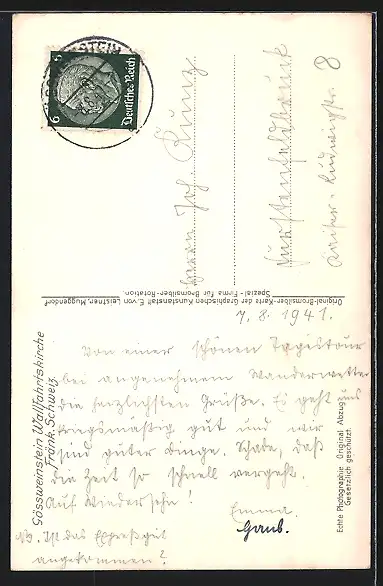 Gössweinstein Wallfahrtskirche
Fränk. Schweiz
7. 8. 1941.
Von einer schönen Tagestour
bei angenehmem Wanderwetter
die herzlichsten Grüße. Es geht uns
kriegsmäßig gut und wir
sind guter Dinge. Schade, daß
die Zeit so schnell vergeht.
Auf Wiedersehn!
Emma.
NB. Ist das Expreßgut
angekommen?
Echte Photographie Original Abzug
Gesetzlich geschützt.
Original-Bromsilber-Karte der Graphischen Kunstanstalt E. von Leistner, Muggendorf
Spezial-Firma für Bromsilber-Rotation.
Deutsches Reich
6
6
Herrn Joh. Kunz
Fürstenfeldbruck
Ludwigstr. 8